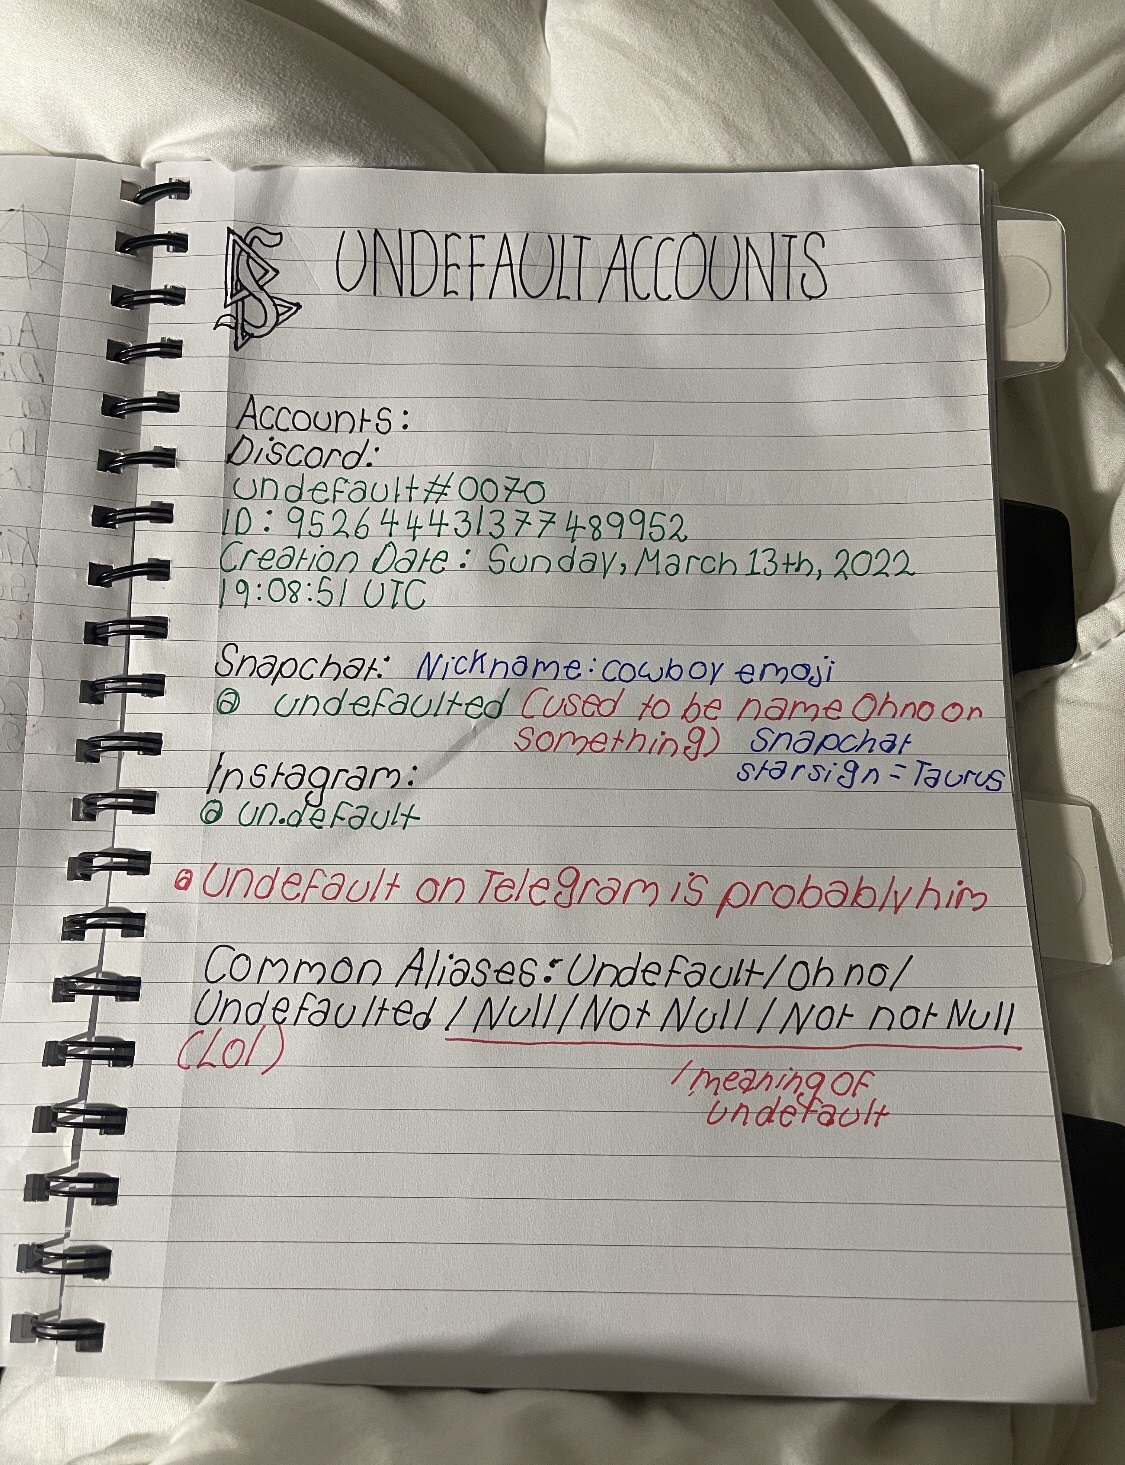 UNDEFAULT ACCOUNTS
Accounts:
Discord:
undefault#0070
ID: 952644431377489952
Creation Date: Sunday, March 13th, 2022
19:08:51 UTC
Snapchat: Nickname: cowboy emoji
@ undefaulted (used to be name Ohno or
something) Snapchat
starsign = Taurus
Instagram:
@ un.default
@ undefault on Telegram is probably him
Common Aliases: Undefault/Oh no/
Undefaulted / Null / Not Null / Not not Null
(Lol)
/meaning of
undefault